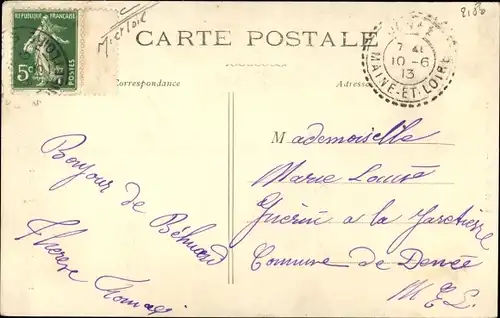 M et Loire
2186
RÉPUBLIQUE FRANÇAISE
5c
POSTES
CARTE POSTALE
Correspondance
Adresse
10 - 6
13
MAINE-ET-LOIRE
Mademoiselle
Marie Louise
Guérin a la Jaretière
Commune de Denée
M E L
Bonjour de Béhuard
Thérèse Thomas